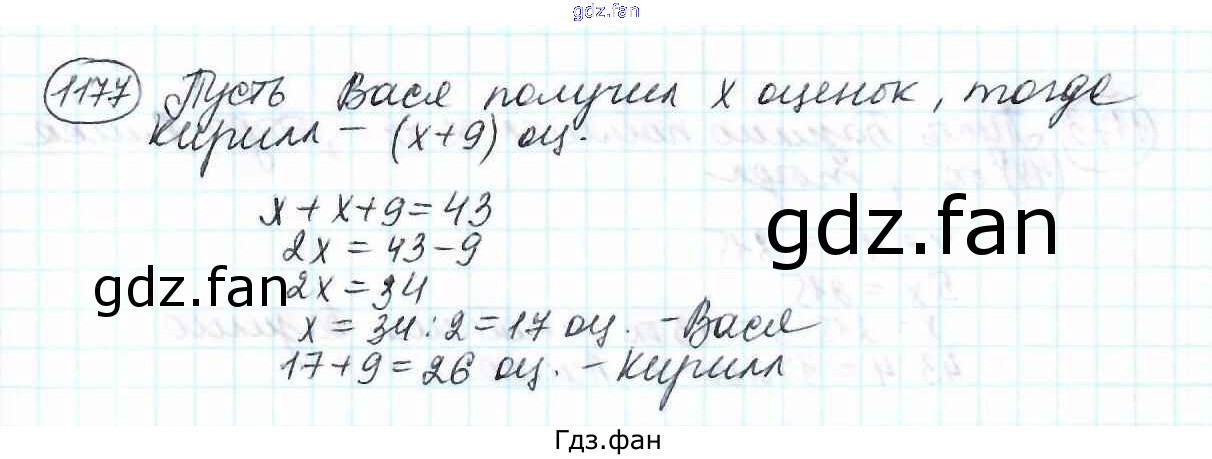 gdz.fan
1177 Пусть Вася получил x оценок, тогда
Кирилл – (x+9) оц.
x + x + 9 = 43
2x = 43 - 9
2x = 34
x = 34 : 2 = 17 оц. – Вася
17 + 9 = 26 оц. – Кирилл
gdz.fan
gdz.fan
Гдз.фан